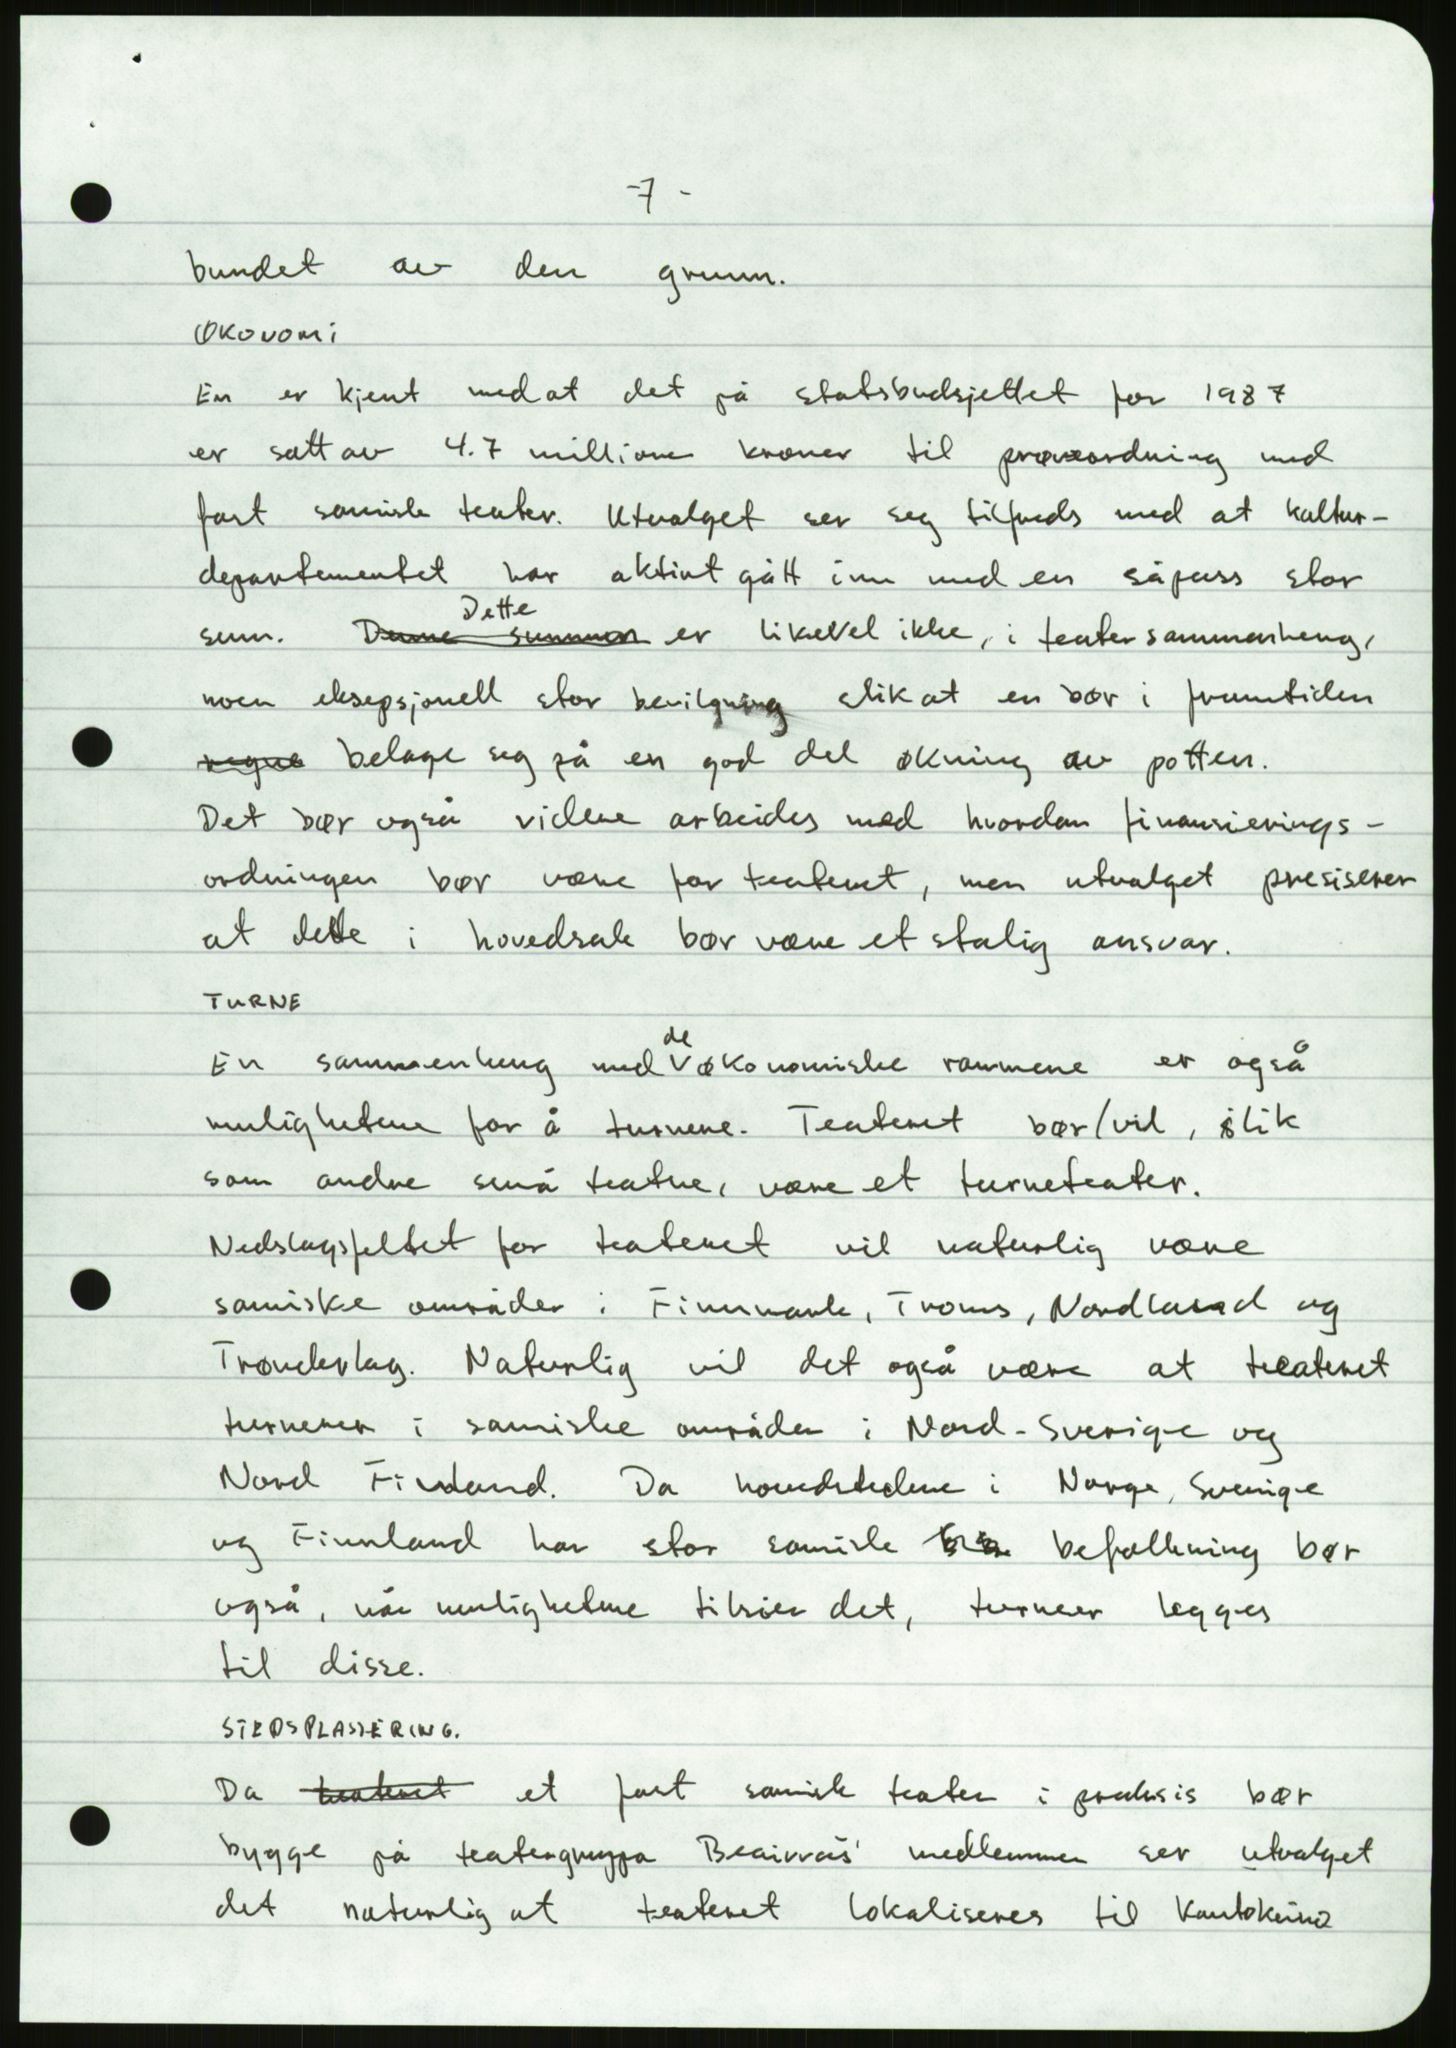 -7-
bundet av den grunn.
ØKONOMI
En er kjent med at det på statsbudsjettet for 1987
er satt av 4.7 millione kroner til prøveordning med
fast samisk teater. Utvalget ser seg tilfreds med at kultur-
departementet har aktivt gått inn med en såpass stor
Dette
sum. Denne summen er likevel ikke, i teatersammenheng,
noen eksepsjonell stor bevilgning slik at en bør i framtiden
regne belage seg på en god del økning av potten.
Det bør også videre arbeides med hvordan finansierings-
ordningen bør være for teateret, men utvalget presiserer
at dette i hovedsak bør være et statlig ansvar.
TURNE
de
En sammenheng med økonomiske rammene er også
mulighetene for å turnere. Teateret bør/vil, slik
som andre små teatre, være et turneteater.
Nedslagsfeltet for teateret vil naturlig være
samiske områder i Finnmark, Troms, Nordland og
Trønderlag. Naturlig vil det også være at teateret
turnerer i samiske områder i Nord-Sverige og
Nord Finland. Da hovedstedene i Norge, Sverige
og Finnland har stor samisk befolkning bør
også, når mulighetene tilsier det, turneer legges
til disse.
STEDSPLASSERING.
Da teateret et fast samisk teater i praksis bør
bygge på teatergruppa Beaivváš' medlemmer ser utvalget
det naturlig at teateret lokaliseres til Kautokeino